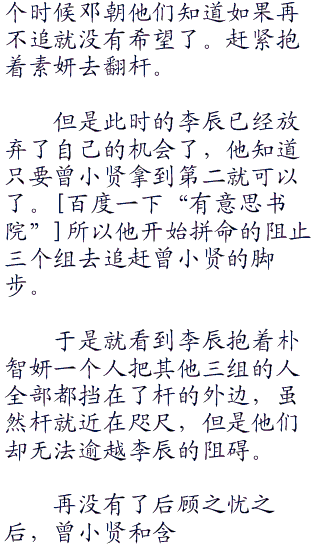 个时候邓朝他们知道如果再
不追就没有希望了。赶紧抱
着素妍去翻杆。
但是此时的李辰已经放
弃了自己的机会了，他知道
只要曾小贤拿到第二就可以
了。[百度一下“有意思书
院”]所以他开始拼命的阻止
三个组去追赶曾小贤的脚
步。
于是就看到李辰抱着朴
智妍一个人把其他三组的人
全部都挡在了杆的外边，虽
然杆就近在咫尺，但是他们
却无法逾越李辰的阻碍。
再没有了后顾之忧之
后，曾小贤和含